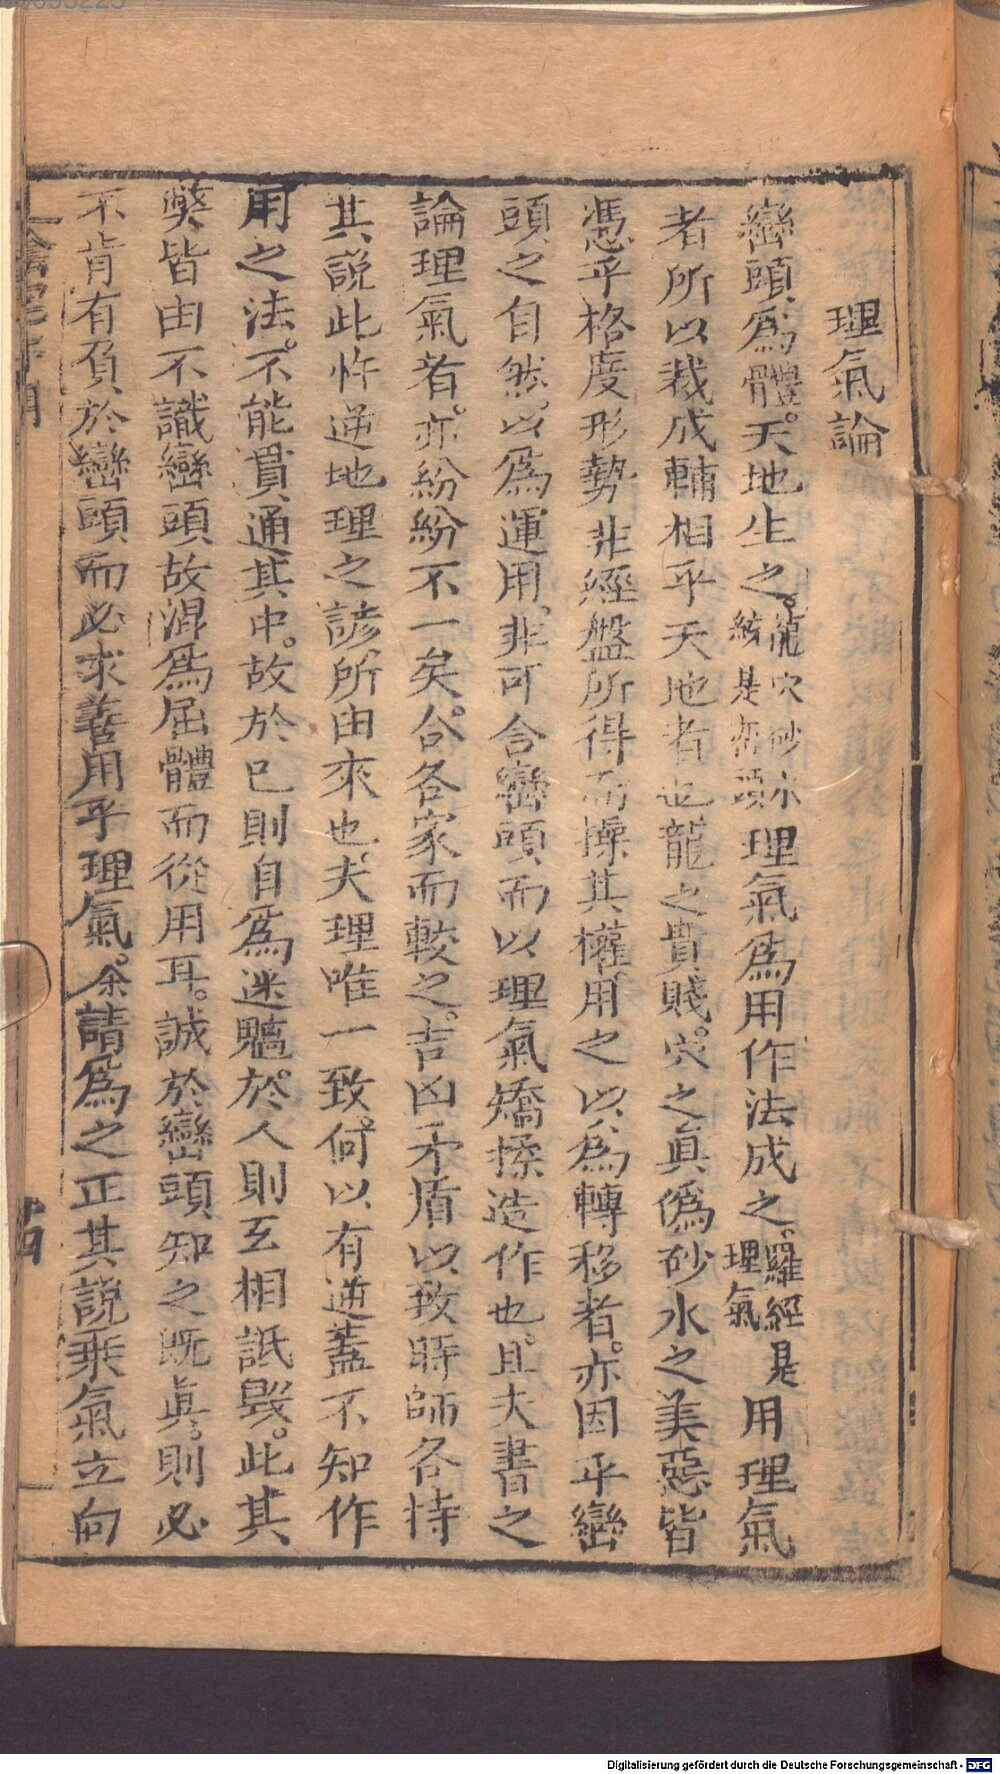 理氣論
巒頭爲體。天地生之。龍穴砂水統是巒頭理氣爲用作法成之。羅經是理氣用理氣
者所以裁成輔相乎天地者也龍之貴賤。穴之眞僞砂水之美惡皆
憑乎格度形勢非經盤所得而操其權。用之以爲轉移者。亦因乎巒
頭之自然。以爲運用。非可舍巒頭而以理氣矯揉造作也。且夫書之
論理氣者。亦紛紛不一矣。合各家而較之。吉凶矛盾以致時師各持
其說此忤逆地理之諺所由來也。夫理唯一致。何以有逆蓋不知作
用之法。不能貫通其中。故於已則自爲迷魑。於人則互相詆毀。此其
獘皆由不識巒頭故混爲屈體而從用耳。誠於巒頭知之既眞。則必
不肯有負於巒頭而必求善用乎理氣。余請爲之正其說乘氣立向
Digitalisierung gefördert durch die Deutsche Forschungsgemeinschaft - DFG